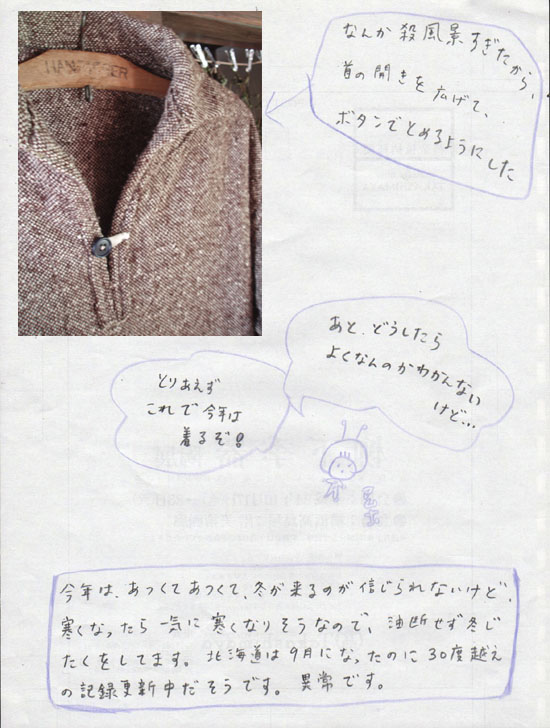 なんか殺風景すぎたから、
首の開きを広げて、
ボタンでとめるようにした
あと、どうしたら
よくなんのかわかんない
けど…
とりあえず
これで今年は
着るぞ!
今年は、あつくてあつくて、冬が来るのが信じられないけど、
寒くなったら一気に寒くなりそうなので、油断せず冬じ
たくをしてます。北海道は9月になったのに30度越え
の記録更新中だそうです。異常です。